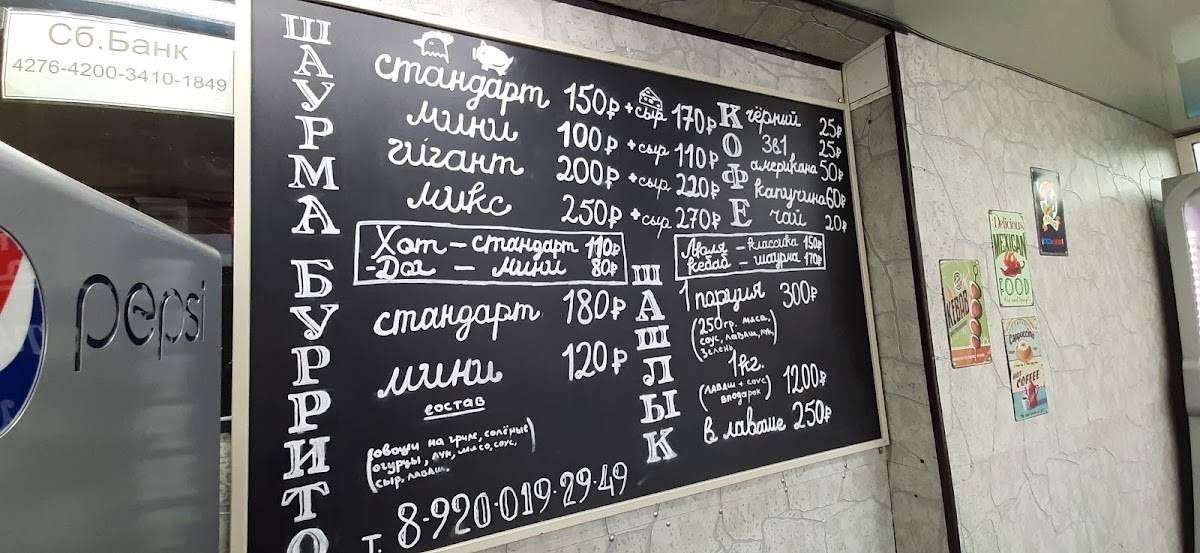 Сб.Банк
4276-4200-3410-1849
pepsi
ШАУРМА
стандарт 150₽ + сыр 170₽
мини 100₽ + сыр 110₽
гигант 200₽ + сыр 220₽
микс 250₽ + сыр 270₽
Хот - стандарт 110₽
-Дог - мини 80₽
БУРРИТО
стандарт 180₽
мини 120₽
состав
(овощи на гриле, солёные
огурцы, лук, мясо, соус,
сыр, лаваш)
т. 8-920-019-29-49
КОФЕ
чёрний 25₽
3в1 25₽
американа 50₽
капучина 60₽
чай 20₽
Люля - классика 150₽
кебаб - шаурма 170₽
ШАШЛЫК
1 порция 300₽
(250гр. мяса,
соус, лаваш, лук,
зелень)
1кг.
(лаваш + соус
вподарок) 1200₽
в лаваше 250₽
Delicious
MEXICAN
FOOD
KEBAB
Cappuccino
HOT
COFFEE